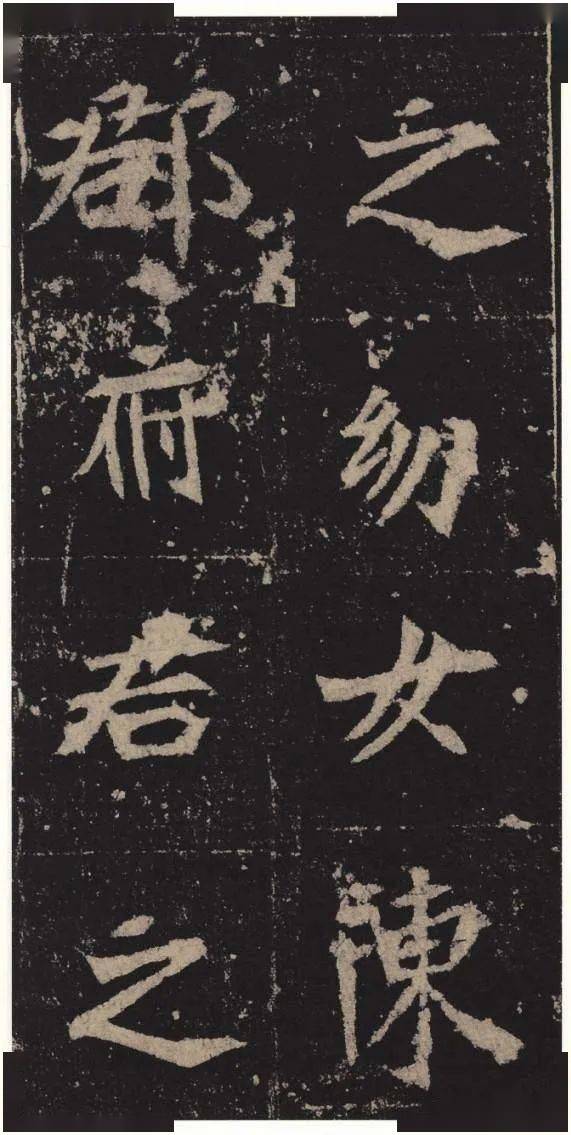 之幼女陳
郡府君之